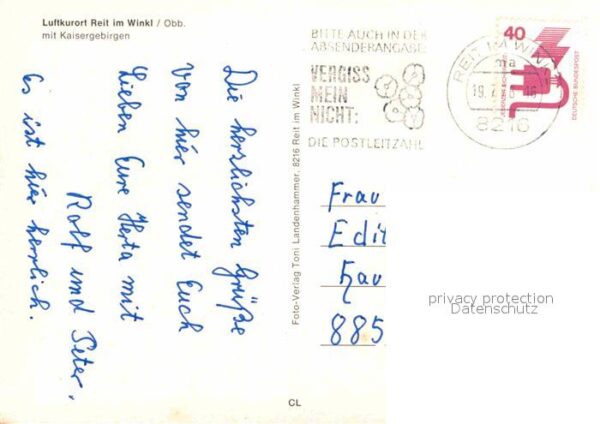 Luftkurort Reit im Winkl / Obb.
mit Kaisergebirgen
BITTE AUCH IN DER
ABSENDERANGABE
VERGISS
MEIN
NICHT:
DIE POSTLEITZAHL
REIT IM WINKL
ma
8216
40
DEUTSCHE BUNDESPOST
Die herzlichsten Grüße
von hier sendet Euch
Lieben Eure Herta mit
Rolf und Peter.
Es ist hier herrlich.
Foto-Verlag Toni Landenhammer, 8216 Reit im Winkl
Frau
Edit
Hau
885
privacy protection
Datenschutz
CL